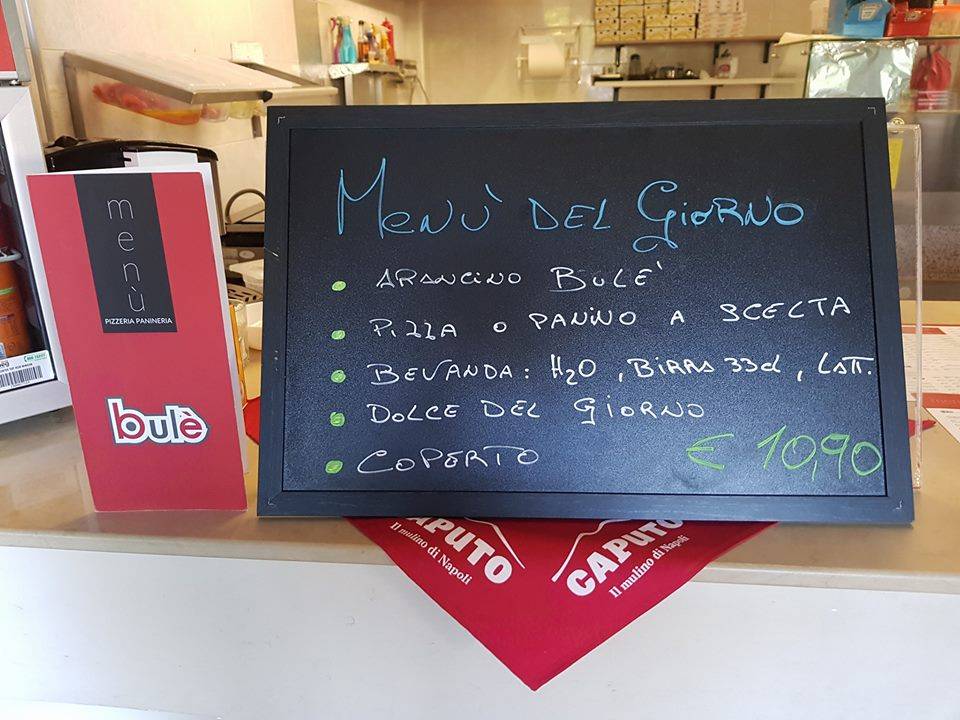 menù
PIZZERIA PANINERIA
bulè
Menù DEL GIORNO
ARANCINO BULE'
PIZZA O PANINO A SCELTA
BEVANDA: H2O, BIRRA 33cl, LATT.
DOLCE DEL GIORNO
COPERTO
€ 10,90
CAPUTO
Il mulino di Napoli
CAPUTO
Il mulino di Napoli